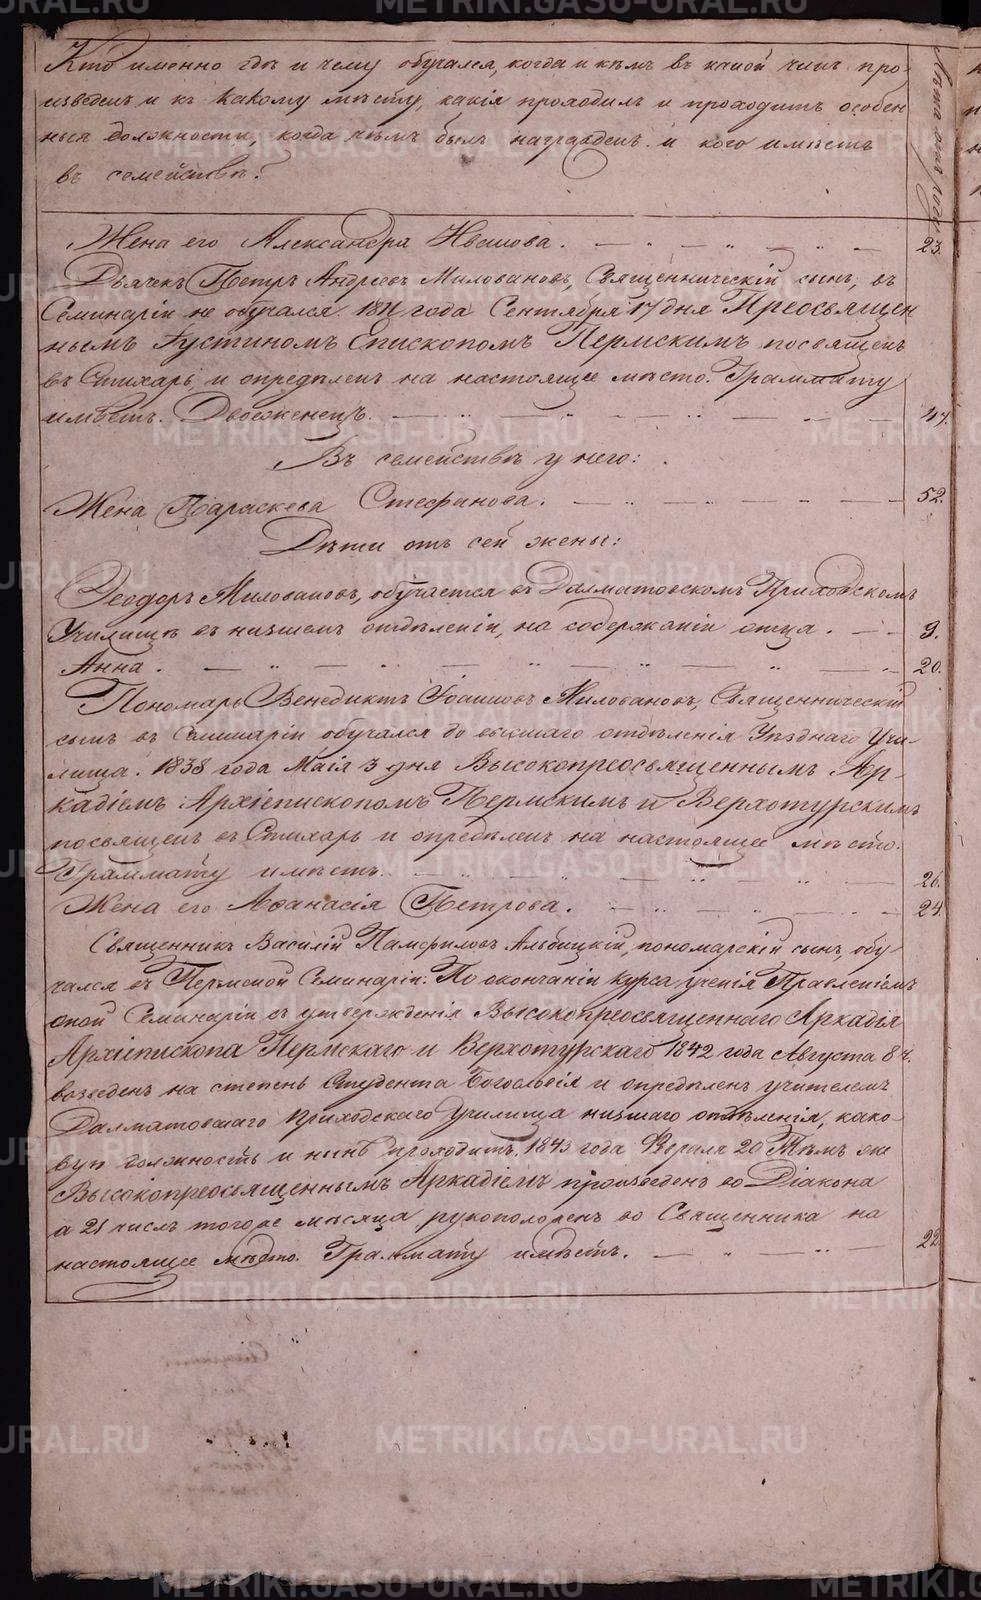 Кто именно гдѣ и чему обучался, когда и кѣмъ въ какой чинъ про-
изведенъ и къ какому мѣсту, какія проходилъ и проходитъ особен
ныя должности, когда чѣмъ былъ награжденъ и кого имѣетъ
въ семействѣ.
Лѣта отъ роду
Жена его Александра Иванова. 23.
Дьячекъ Петръ Андреевъ Миловановъ, Священническій сынъ, въ
Семинаріи не обучался. 1811 года Сентября 17 дня Преосвящен
нымъ Іустиномъ Епископомъ Пермскимъ посвященъ
въ Стихарь, и опредѣленъ на настоящее мѣсто. Граммату
имѣетъ. Двоеженецъ. 47.
Въ семействѣ у него:
Жена Параскева Стефанова. 52.
Дѣти отъ сей жены:
Ѳеодоръ Миловановъ, обучается въ Далматовскомъ Приходскомъ
Училищѣ въ низшемъ отдѣленіи, на содержаніи отца. 9.
Анна. 20.
Пономарь Венедиктъ Іоанновъ Миловановъ, Священническій
сынъ въ Семинаріи обучался до высшаго отдѣленія Уѣзднаго Учи-
лища. 1838 года Маія 3 дня Высокопреосвященнымъ Ар-
кадіемъ Архіепископомъ Пермскимъ и Верхотурскимъ
посвященъ въ Стихарь и опредѣленъ на настоящее мѣсто.
Граммату имѣетъ. 26.
Жена его Аѳанасія Петрова. 24.
Священникъ Василій Памфиловъ Альбицкій, пономарскій сынъ, обу-
чался въ Пермской Семинаріи. По окончаніи курса ученія Правленіемъ
оной Семинаріи съ утвержденія Высокопреосвященнаго Аркадія
Архіепископа Пермскаго и Верхотурскаго 1842 года Августа 8 ч.
возведенъ на степень Студента Богословія и опредѣленъ учителемъ
Далматовскаго Приходскаго Училища низшаго отдѣленія, како-
вую должность и нынѣ проходитъ. 1843 года 20 Тѣмъ же
Высокопреосвященнымъ Аркадіемъ произведенъ во Діакона
а 21 числъ тогоже мѣсяца рукоположенъ во Священника на
настоящее мѣсто. Граммату имѣетъ. 22.
METRIKI.GASO-URAL.RU